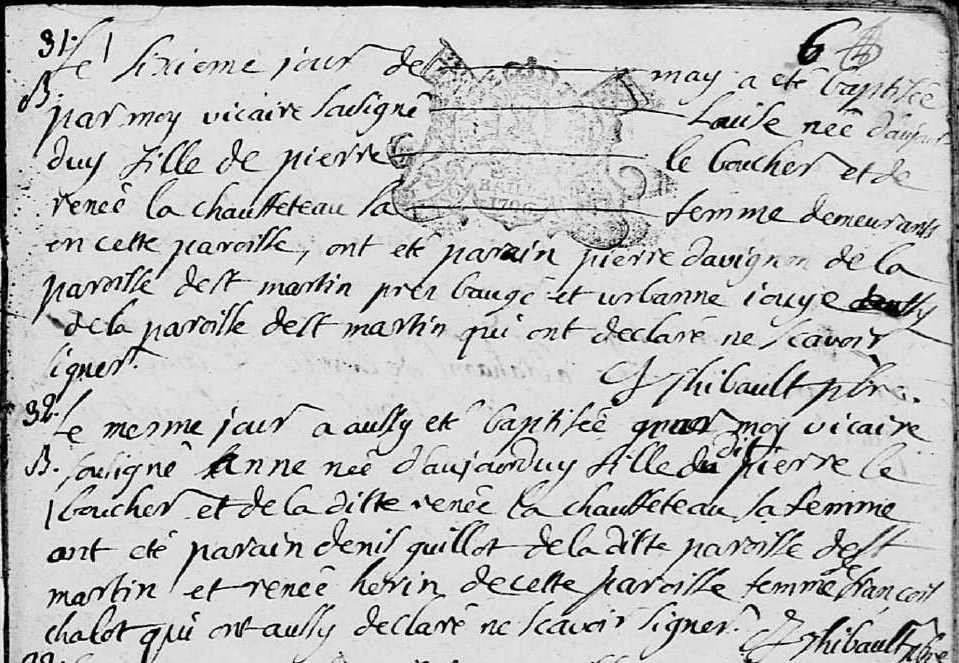 31. 6
Le sixieme jour de may a eté baptisée
B. par moy vicaire sousigné Louise née d'aujour
duy fille de pierre le boucher et de
renée la chauffeteau sa femme demeurants
en cette paroisse, ont eté parain pierre davignon de la
paroisse de st martin pres baugé et urbanne jouye
de la paroisse de st martin qui ont declaré ne scavoir
signer.
Thibault pbre.
32. Le mesme jour a aussy eté baptisée par moy vicaire
B. sousigné Anne née d'aujourduy fille du dit pierre le
boucher et de la ditte renée la chauffeteau sa femme
ont eté parain denis quillot de la ditte paroisse de st
martin et renée herin de cette paroisse femme de françois
chalot qui ont aussy declaré ne scavoir signer. Thibault pbre